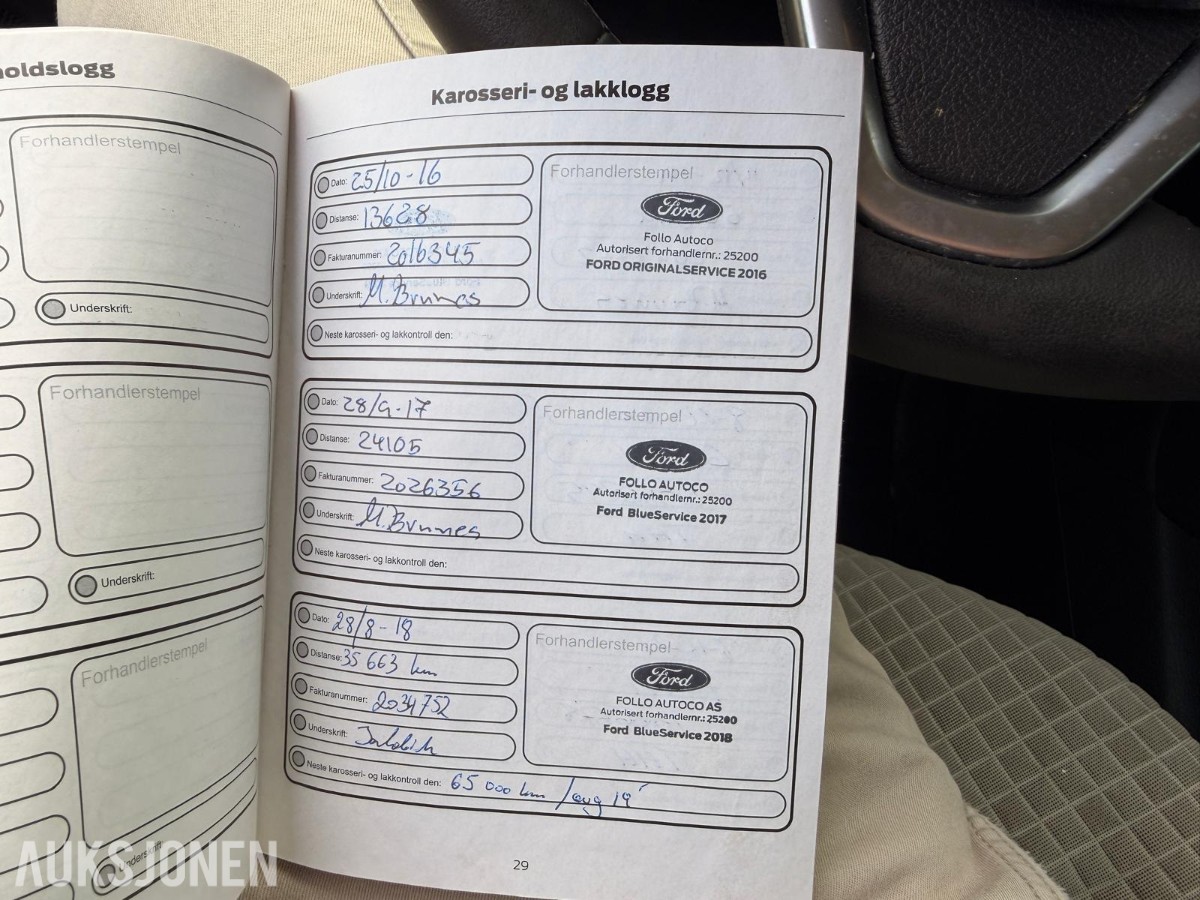 oldslogg
Forhandlerstempel
Underskrift:
Forhandlerstempel
Underskrift:
Forhandlerstempel
Underskrift:
Karosseri- og lakklogg
Dato: 25/10-16
Distanse: 13628
Fakturanummer: 2016345
Underskrift: M. Brunnes
Neste karosseri- og lakkontroll den:
Forhandlerstempel
Ford
Follo Autoco
Autorisert forhandlernr.: 25200
FORD ORIGINALSERVICE 2016
Dato: 28/9-17
Distanse: 24105
Fakturanummer: 2026356
Underskrift: M. Brunnes
Neste karosseri- og lakkontroll den:
Forhandlerstempel
Ford
FOLLO AUTOCO
Autorisert forhandlernr.: 25200
Ford BlueService 2017
Dato: 28/8-18
Distanse: 35 663 km
Fakturanummer: 2034752
Underskrift:
Neste karosseri- og lakkontroll den: 65 000 km / aug 19
Forhandlerstempel
Ford
FOLLO AUTOCO AS
Autorisert forhandlernr.: 25200
Ford BlueService 2018
29
AUKSJONEN